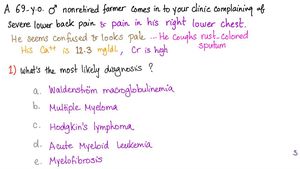 A 69-y.o. ♂ nonretired farmer comes in to your clinic complaining of
severe lower back pain & pain in his right lower chest.
He seems confused & looks pale ... He coughs rust-colored
sputum
His Ca⁺⁺ is 12.3 mg/dL, Cr is high
1) What's the most likely diagnosis ?
a. Waldenström macroglobulinemia
b. Multiple Myeloma
c. Hodgkin's lymphoma
d. Acute Myeloid Leukemia
e. Myelofibrosis